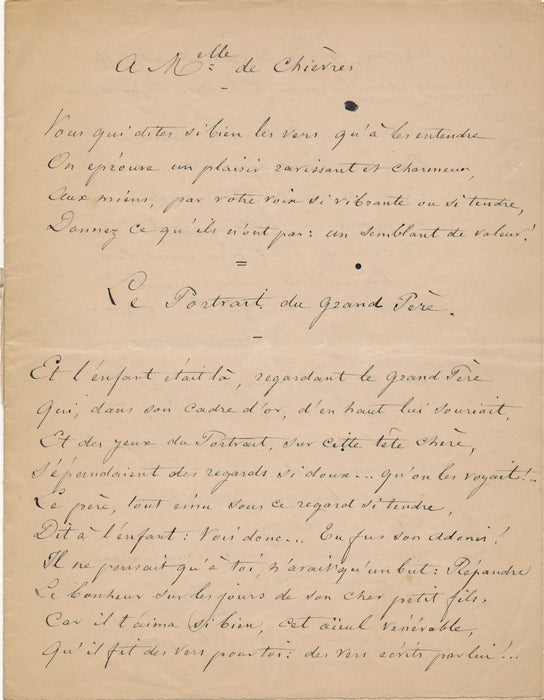 A Melle de Chièvres
Vous qui dites si bien les vers qu'à les entendre
On éprouve un plaisir ravissant et charmeur,
Aux miens, par votre voix si vibrante ou si tendre,
Donnez ce qu'ils n'ont pas: un semblant de valeur!
Le Portrait du Grand Père.
Et l'enfant était là, regardant le Grand Père
Qui, dans son cadre d'or, d'en haut lui souriait,
Et des yeux du Portrait, sur cette tête chère,
S'épandaient des regards si doux... qu'on les voyait!..
Le père, tout ému sous ce regard si tendre,
Dit à l'enfant: Vois donc... Tu fus son adoré!
Il ne pensait qu'à toi, n'avait qu'un but: Répandre
Le bonheur sur les jours de son cher petit fils.
Car il t'aima si bien, cet aïeul vénérable,
Qu'il fit des vers pour toi: des vers écrits par lui!...